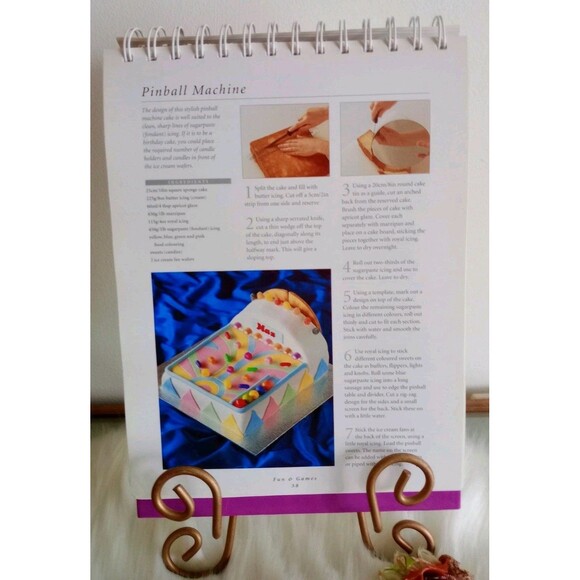 Pinball Machine
The design of this stylish pinball
machine cake is well suited to the
clean, sharp lines of sugarpaste
(fondant) icing. If it is to be a
birthday cake, you could place
the required number of candle
holders and candles in front of
the ice cream wafers.
INGREDIENTS
25cm/10in square sponge cake
225g/8oz butter icing
60ml/4 tbsp apricot glaze
450g/1lb marzipan
115g/4oz royal icing
450g/1lb sugarpaste (fondant) icing
yellow, blue, green and pink
food colouring
sweets (candies)
2 ice cream fan wafers
1 Split the cake and fill with
butter icing. Cut off a 5cm/2in
strip from one side and reserve.
2 Using a sharp serrated knife,
cut a thin wedge off the top
of the cake, diagonally along its
length, to end just above the
halfway mark. This will give a
sloping top.
3 Using a 20cm/8in round cake
tin as a guide, cut an arched
back from the reserved cake.
Brush the pieces of cake with
apricot glaze. Cover each
separately with marzipan and
place on a cake board, sticking the
pieces together with royal icing.
Leave to dry overnight.
4 Roll out two-thirds of the
sugarpaste icing and use to
cover the cake. Leave to dry.
5 Using a template, mark out a
design on top of the cake.
Colour the remaining sugarpaste
icing in different colours, roll out
thinly and cut to fit each section.
Stick with water and smooth the
joins carefully.
6 Use royal icing to stick
different coloured sweets on
the cake as buffers, flippers, lights
and knobs. Roll some blue
sugarpaste icing into a long
sausage and use to edge the pinball
table and divider. Cut a zig-zag
design for the sides and a small
screen for the back. Stick these on
with a little water.
7 Stick the ice cream fans at
the back of the screen, using a
little royal icing. Load the pinball
sweets. The name on the screen
can be added with
or piped with icing.
Max
Fun & Games
58